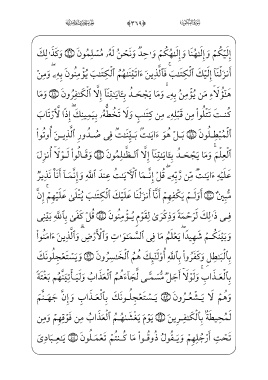 إِلَيْكُمْ وَإِلَٰهُنَا وَإِلَٰهُكُمْ وَاحِدٌ وَنَحْنُ لَهُۥ مُسْلِمُونَ ۝ وَكَذَٰلِكَ
أَنزَلْنَآ إِلَيْكَ ٱلْكِتَٰبَ ۚ فَٱلَّذِينَ ءَاتَيْنَٰهُمُ ٱلْكِتَٰبَ يُؤْمِنُونَ بِهِۦ ۖ وَمِنْ
هَٰٓؤُلَآءِ مَن يُؤْمِنُ بِهِۦ ۚ وَمَا يَجْحَدُ بِـَٔايَٰتِنَآ إِلَّا ٱلْكَٰفِرُونَ ۝ وَمَا
كُنتَ تَتْلُوا۟ مِن قَبْلِهِۦ مِن كِتَٰبٍ وَلَا تَخُطُّهُۥ بِيَمِينِكَ ۖ إِذًا لَّٱرْتَابَ
ٱلْمُبْطِلُونَ ۝ بَلْ هُوَ ءَايَٰتٌۢ بَيِّنَٰتٌ فِى صُدُورِ ٱلَّذِينَ أُوتُوا۟
ٱلْعِلْمَ ۚ وَمَا يَجْحَدُ بِـَٔايَٰتِنَآ إِلَّا ٱلظَّٰلِمُونَ ۝ وَقَالُوا۟ لَوْلَآ أُنزِلَ
عَلَيْهِ ءَايَٰتٌ مِّن رَّبِّهِۦ ۖ قُلْ إِنَّمَا ٱلْءَايَٰتُ عِندَ ٱللَّهِ وَإِنَّمَآ أَنَا۠ نَذِيرٌ
مُّبِينٌ ۝ أَوَلَمْ يَكْفِهِمْ أَنَّآ أَنزَلْنَا عَلَيْكَ ٱلْكِتَٰبَ يُتْلَىٰ عَلَيْهِمْ ۚ إِنَّ
فِى ذَٰلِكَ لَرَحْمَةً وَذِكْرَىٰ لِقَوْمٍ يُؤْمِنُونَ ۝ قُلْ كَفَىٰ بِٱللَّهِ بَيْنِى
وَبَيْنَكُمْ شَهِيدًا ۖ يَعْلَمُ مَا فِى ٱلسَّمَٰوَٰتِ وَٱلْأَرْضِ ۗ وَٱلَّذِينَ ءَامَنُوا۟
بِٱلْبَٰطِلِ وَكَفَرُوا۟ بِٱللَّهِ أُو۟لَٰٓئِكَ هُمُ ٱلْخَٰسِرُونَ ۝ وَيَسْتَعْجِلُونَكَ
بِٱلْعَذَابِ ۚ وَلَوْلَآ أَجَلٌ مُّسَمًّى لَّجَآءَهُمُ ٱلْعَذَابُ وَلَيَأْتِيَنَّهُم بَغْتَةً
وَهُمْ لَا يَشْعُرُونَ ۝ يَسْتَعْجِلُونَكَ بِٱلْعَذَابِ وَإِنَّ جَهَنَّمَ
لَمُحِيطَةٌۢ بِٱلْكَٰفِرِينَ ۝ يَوْمَ يَغْشَىٰهُمُ ٱلْعَذَابُ مِن فَوْقِهِمْ وَمِن
تَحْتِ أَرْجُلِهِمْ وَيَقُولُ ذُوقُوا۟ مَا كُنتُمْ تَعْمَلُونَ ۝ يَٰعِبَادِىَ